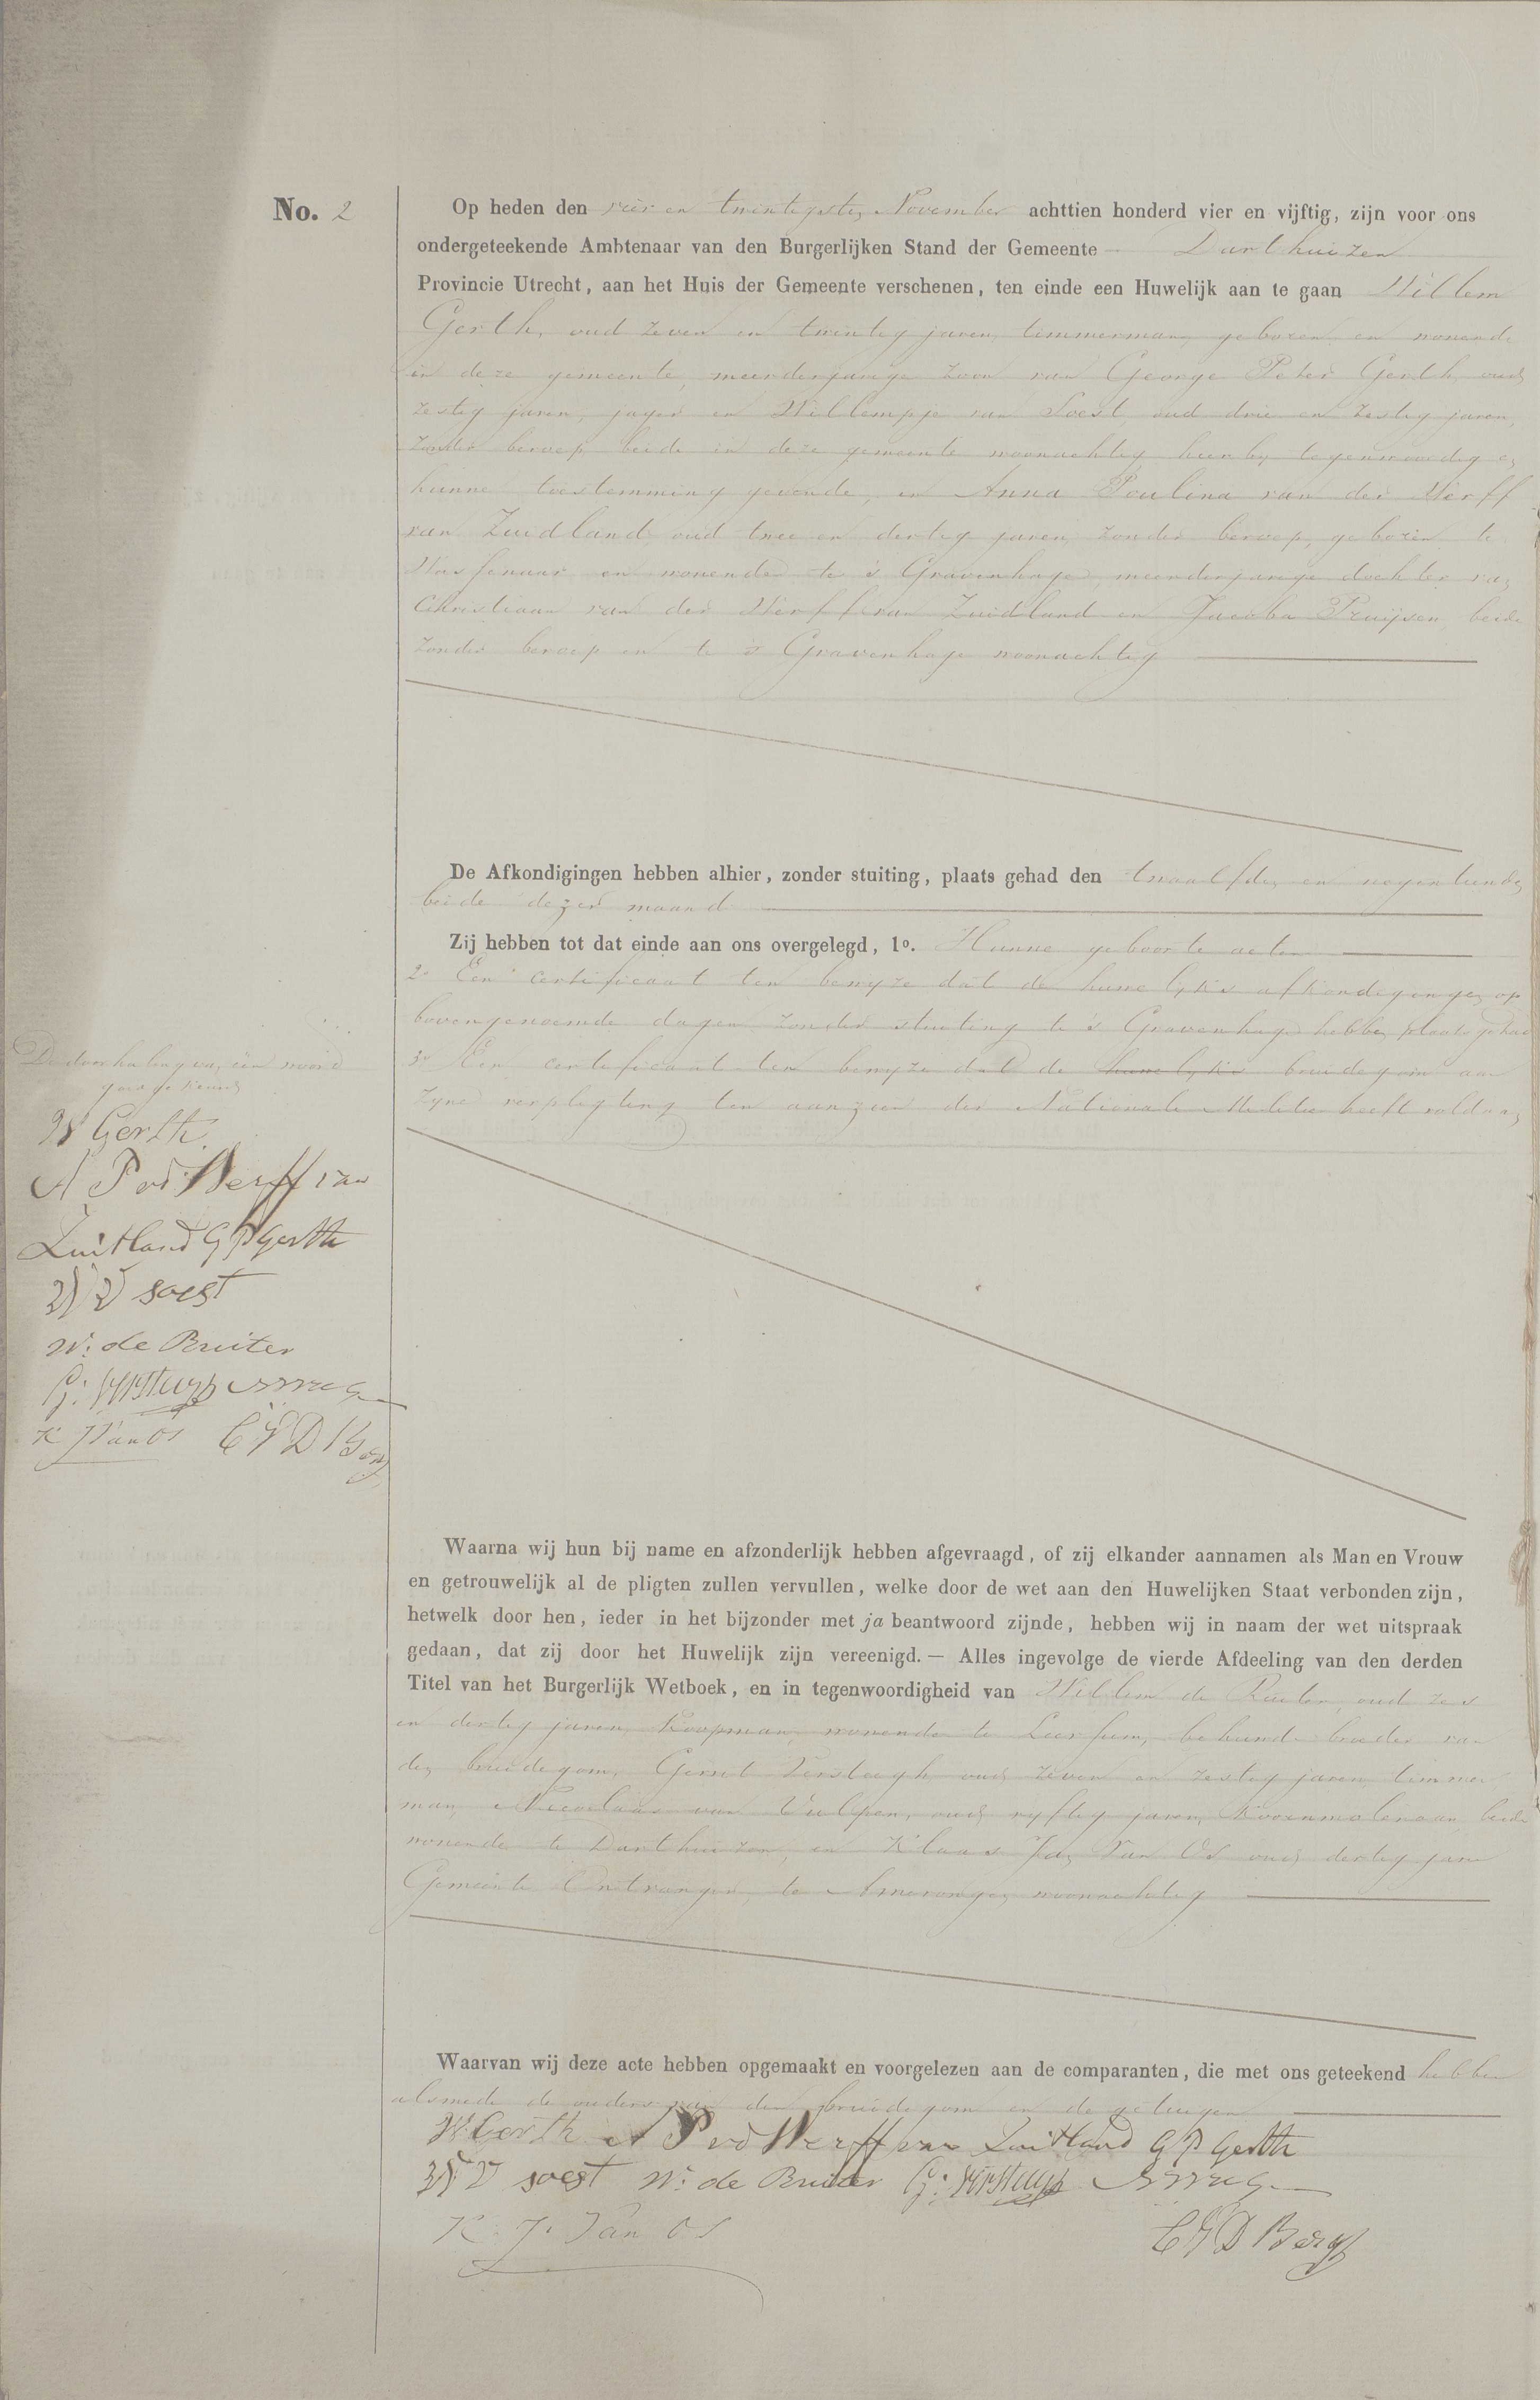 No. 2
Op heden den vier en twintigsten November achttien honderd vier en vijftig, zijn voor ons
ondergeteekende Ambtenaar van den Burgerlijken Stand der Gemeente Darthuizen
Provincie Utrecht, aan het Huis der Gemeente verschenen, ten einde een Huwelijk aan te gaan Willem
Gerth, oud zeven en twintig jaren, timmerman, geboren en wonende
in deze gemeente, meerderjarige zoon van George Peter Gerth, oud
zestig jaren, jager en Willempje van Soest, oud drie en zestig jaren,
zonder beroep, beide in deze gemeente woonachtig, hierbij tegenwoordig en
hunne toestemming gevende, en Anna Paulina van der Werff
van Zuidland, oud twee en dertig jaren, zonder beroep, geboren te
Wassenaar en wonende te 's Gravenhage, meerderjarige dochter van
Christiaan van der Werff van Zuidland en Jacoba Pruijsen, beide
zonder beroep en te 's Gravenhage woonachtig
De Afkondigingen hebben alhier, zonder stuiting, plaats gehad den twaalfden en negentienden
beide dezer maand
Zij hebben tot dat einde aan ons overgelegd, 1o. Hunne geboorte acten
2o Een certificaat ten bewyze dat de huwelyks afkondigingen op
bovengenoemde dagen zonder stuiting te 's Gravenhage hebben plaats gehad
3o Een certificaat ten bewyze dat de huwelyks bruidegom aan
zyne verpligting ten aanzien der Nationale Militie heeft voldaan
De doorhaling van één woord
goedgekeurd
W Gerth
A P vd Werff van
Zuitland G P Gerth
W V soest
W: de Bruiter
K J Van Os
Waarna wij hun bij name en afzonderlijk hebben afgevraagd, of zij elkander aannamen als Man en Vrouw
en getrouwelijk al de pligten zullen vervullen, welke door de wet aan den Huwelijken Staat verbonden zijn,
hetwelk door hen, ieder in het bijzonder met ja beantwoord zijnde, hebben wij in naam der wet uitspraak
gedaan, dat zij door het Huwelijk zijn vereenigd. — Alles ingevolge de vierde Afdeeling van den derden
Titel van het Burgerlijk Wetboek, en in tegenwoordigheid van Willem de Ruiter, oud zes
en dertig jaren, Koopman, wonende te Leersum, behuwd broeder van
den bruidegom, Gerrit Versteegh oud zeven en zestig jaren, timmer
man, Nicolaas van Vulpen, oud vyftig jaren, Koornmolenaar, beide
wonende te Darthuizen, en Klaas Jan Van Os oud dertig jaren
Gemeente Ontvanger, te Amerongen woonachtig
Waarvan wij deze acte hebben opgemaakt en voorgelezen aan de comparanten, die met ons geteekend hebben
alsmede de ouders van den bruidegom en de getuigen
W Gerth A P vd Werff van Zuitland G P Gerth
W V soest W: de Bruiter
K. J. Van Os